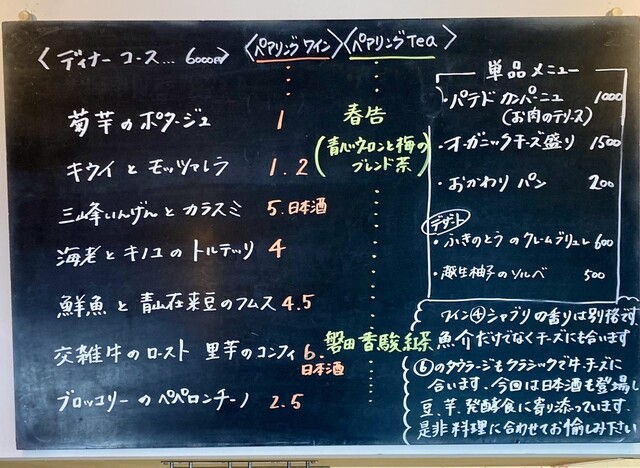 〈ディナー コース… 6000円〉
〈ペアリング ワイン〉〈ペアリング Tea〉
菊芋のポタージュ 1 春告
(青心ウーロンと梅の
ブレンド茶)
キウイ と モッツァレラ 1.2
三峰いんげんと カラスミ 5.日本酒
海老とキノコのトルテッリ 4
鮮魚 と 青山在来豆のフムス 4.5
磐田香駿紅茶
交雑牛のロースト 里芋のコンフィ 6.
日本酒
ブロッコリーのペペロンチーノ 2.5
単品メニュー
・パテド カンパーニュ 1000
(お肉のテリーヌ)
・オーガニックチーズ盛り 1500
・おかわり パン 200
デザート
・ふきのとう のクレームブリュレ 600
・越生柚子のソルベ 500
ワイン④シャブリの香りは別格
魚介だけでなくチーズにも合います
⑥のタウラージもクラシックで牛、チーズに
合います、今回は日本酒も登場し
豆、芋、発酵食に寄り添っています
是非料理に合わせてお愉しみ下さい